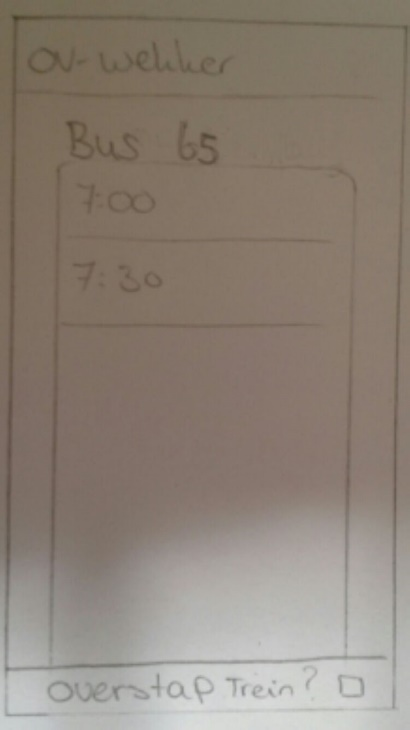 OV-wekker
Bus 65
7:00
7:30
overstap Trein?